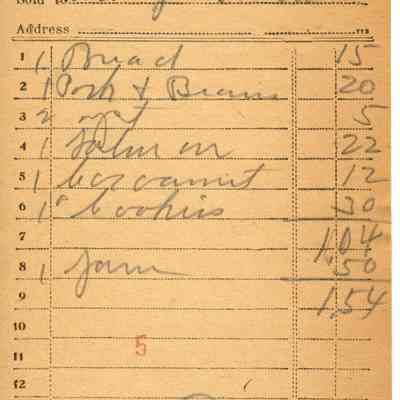 Sold to
Address
1 1 Bread 15
2 1 Pork & Beans 20
3 2 5
4 1 Salmon 22
5 1 Cocoanut 12
6 1 Cookies 30
7 1.04
8 1 Jam .50
9 1.54
10
5
11
12